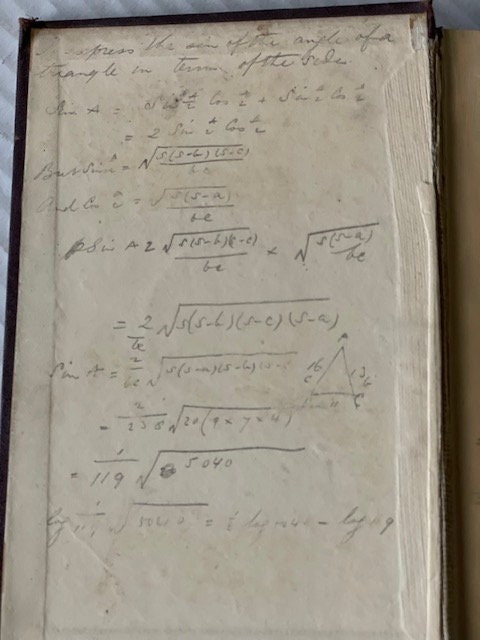 express the sin of the angle of a
triangle in terms of the sides
Sin A = Sin A/2 Cos A/2 + Sin A/2 Cos A/2
= 2 Sin A/2 Cos A/2
But Sin A/2 = √s(s-b)(s-c)/bc
And Cos A/2 = √s(s-a)/bc
Sin A 2 √s(s-b)(s-c)/bc × √s(s-a)/bc
= 2/bc √s(s-b)(s-c)(s-a)
Sin A = 2/bc √s(s-a)(s-b)(s-c
A
16
c
13
b
C
= 2/238 √20(9×7×4)
= 1/119 √5040
log 1/119 √5040 = ½ log - log 119